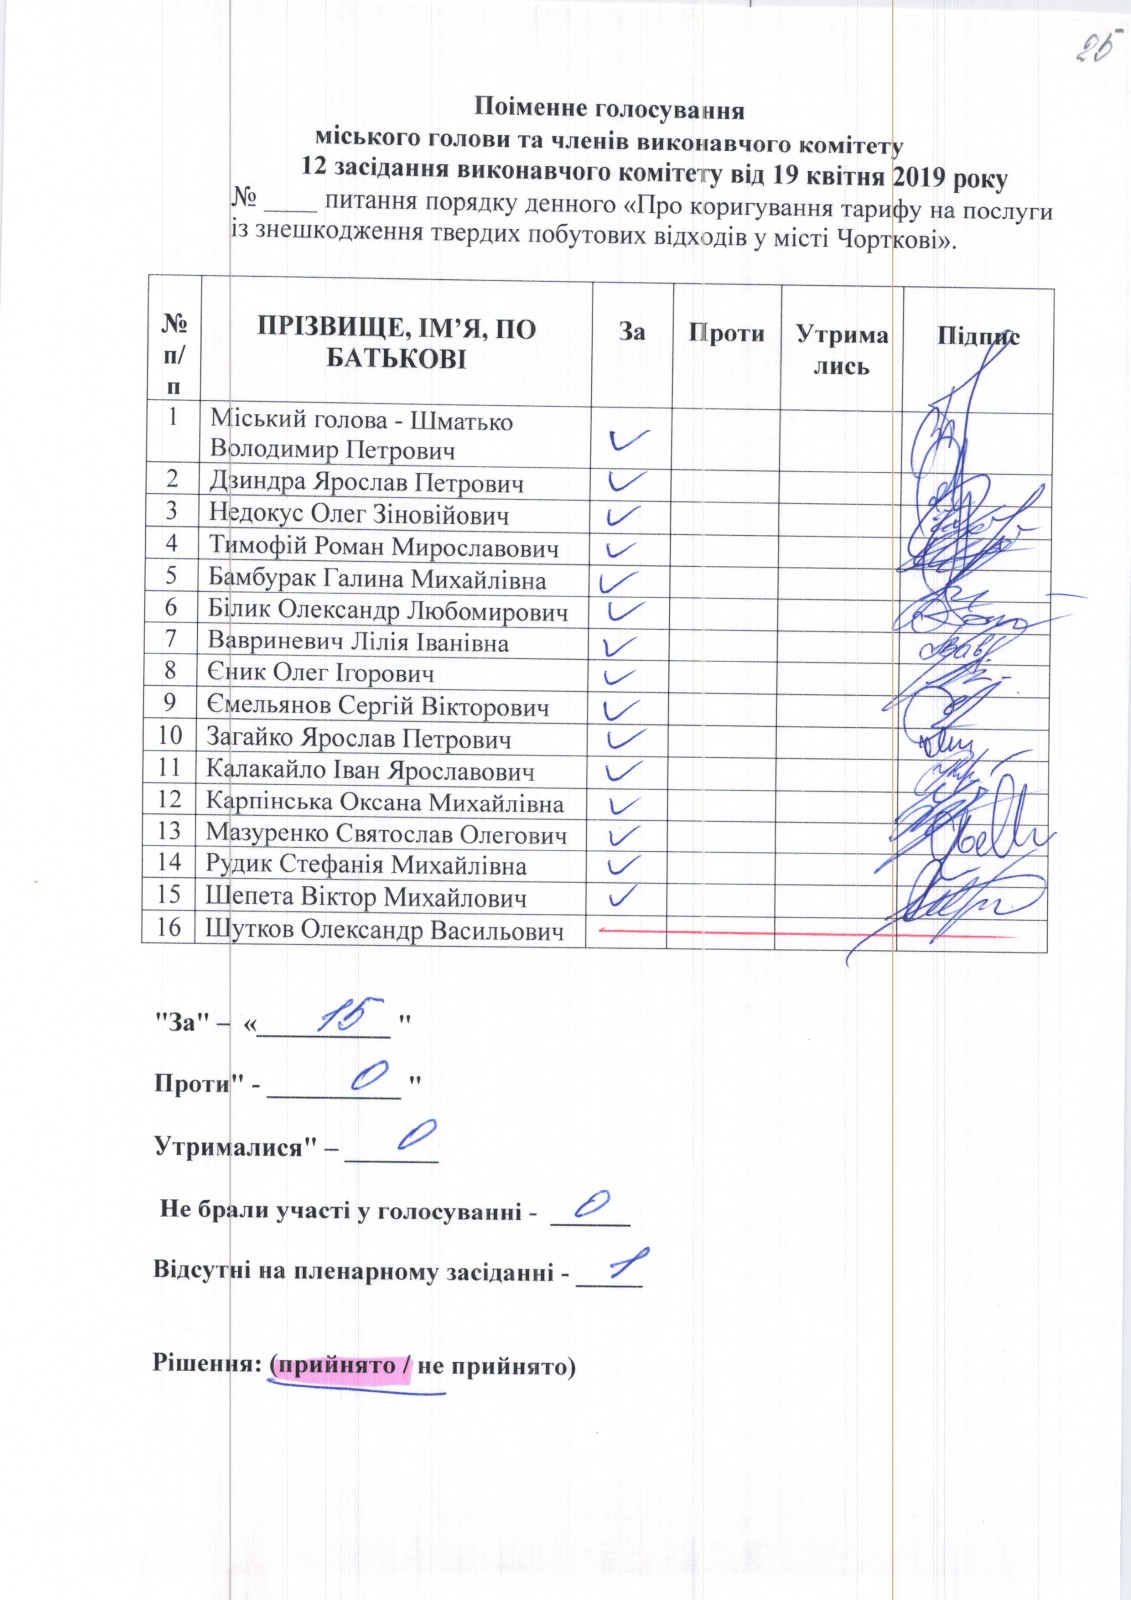 25
Поіменне голосування
міського голови та членів виконавчого комітету
12 засідання виконавчого комітету від 19 квітня 2019 року
№ ____ питання порядку денного «Про коригування тарифу на послуги
із знешкодження твердих побутових відходів у місті Чорткові».
№ п/п ПРІЗВИЩЕ, ІМ’Я, ПО БАТЬКОВІ За Проти Утрима лись Підпис
1 Міський голова - Шматько
Володимир Петрович ✓
2 Дзиндра Ярослав Петрович ✓
3 Недокус Олег Зіновійович ✓
4 Тимофій Роман Мирославович ✓
5 Бамбурак Галина Михайлівна ✓
6 Білик Олександр Любомирович ✓
7 Вавриневич Лілія Іванівна ✓
8 Єник Олег Ігорович ✓
9 Ємельянов Сергій Вікторович ✓
10 Загайко Ярослав Петрович ✓
11 Калакайло Іван Ярославович ✓
12 Карпінська Оксана Михайлівна ✓
13 Мазуренко Святослав Олегович ✓
14 Рудик Стефанія Михайлівна ✓
15 Шепета Віктор Михайлович ✓
16 Шутков Олександр Васильович
"За" – «15 "
Проти" - 0 "
Утрималися" – 0
Не брали участі у голосуванні - 0
Відсутні на пленарному засіданні - 1
Рішення: (прийнято / не прийнято)